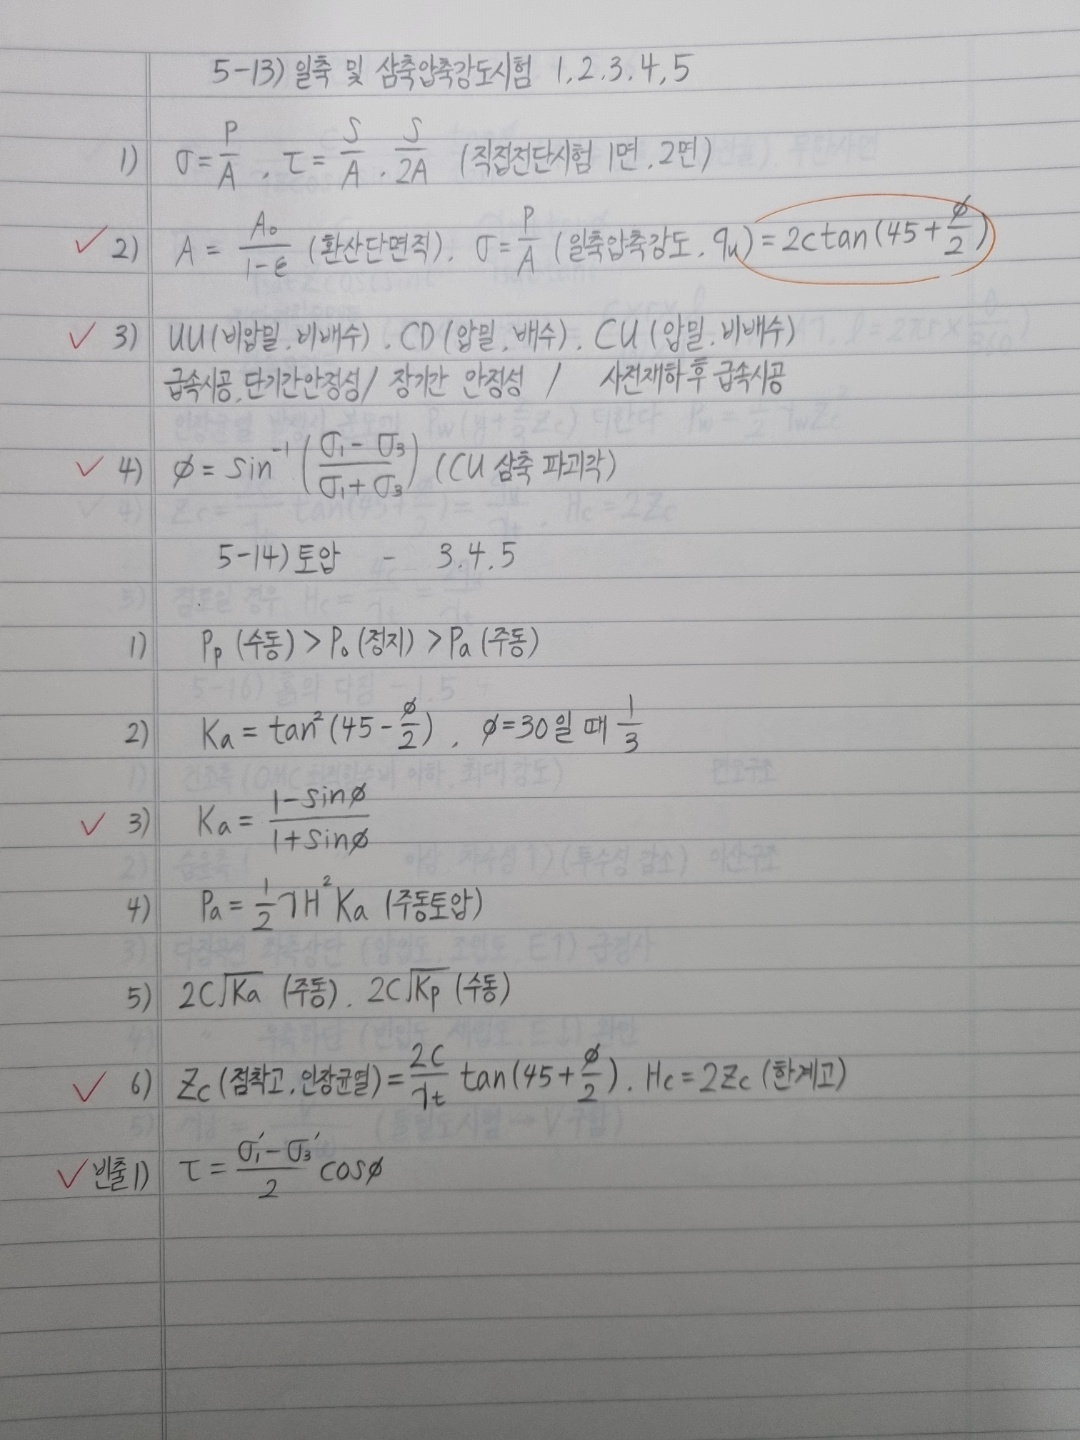 5-13) 일축 및 삼축압축강도시험 1,2,3,4,5
1) σ = P/A, τ = S/A, S/2A (직접전단시험 1면, 2면)
✓ 2) A = A₀/(1-ε) (환산단면적), σ = P/A (일축압축강도, qu) = 2c tan(45 + ø/2)
✓ 3) UU(비압밀, 비배수), CD(압밀, 배수), CU(압밀, 비배수)
급속시공, 단기간안정성 / 장기간 안정성 / 사전재하 후 급속시공
✓ 4) ø = sin⁻¹((σ₁ - σ₃)/(σ₁ + σ₃)) (CU 삼축 파괴각)
5-14) 토압 - 3,4,5
1) Pp (수동) > P₀ (정지) > Pa (주동)
2) Ka = tan²(45 - ø/2), ø=30일 때 1/3
✓ 3) Ka = (1-sinø)/(1+sinø)
4) Pa = 1/2 γH²Ka (주동토압)
5) 2C√Ka (주동), 2C√Kp (수동)
✓ 6) Zc (점착고, 인장균열) = 2C/γt tan(45 + ø/2), Hc = 2Zc (한계고)
✓ 빈출1) τ = (σ₁' - σ₃')/2 cosø